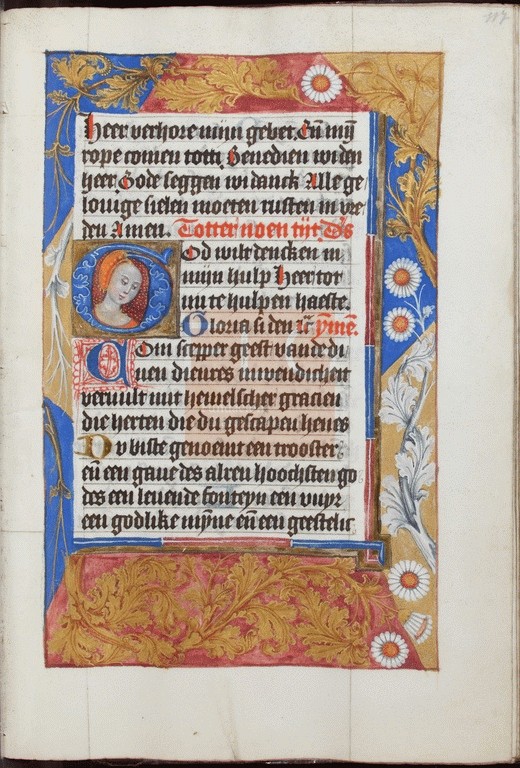 117
Heer verhore mijn gebet. En̄ mijn
rope comen tot ti. Benedien wi den
heer. Gode seggen wi danck. Alle ge
louige sielen moeten rusten in vre
den Amen. Totter noen tijt. Ds̄
God wilt dencken in
mijn hulp Heer tot
mi te hulpen haeste.
Gloria si den ꝛc̄ ymne.
Com scepper geest van de dij
nen dienres inwendicheit
vervult mit hemelscher gracien
die herten die du gescapen heues
Du biste genoemt een trooster
en̄ een gaue des alren hoochsten go
des een leuende fonteyn een vuyr
en̄ een godlike mȳne en̄ een geestelic